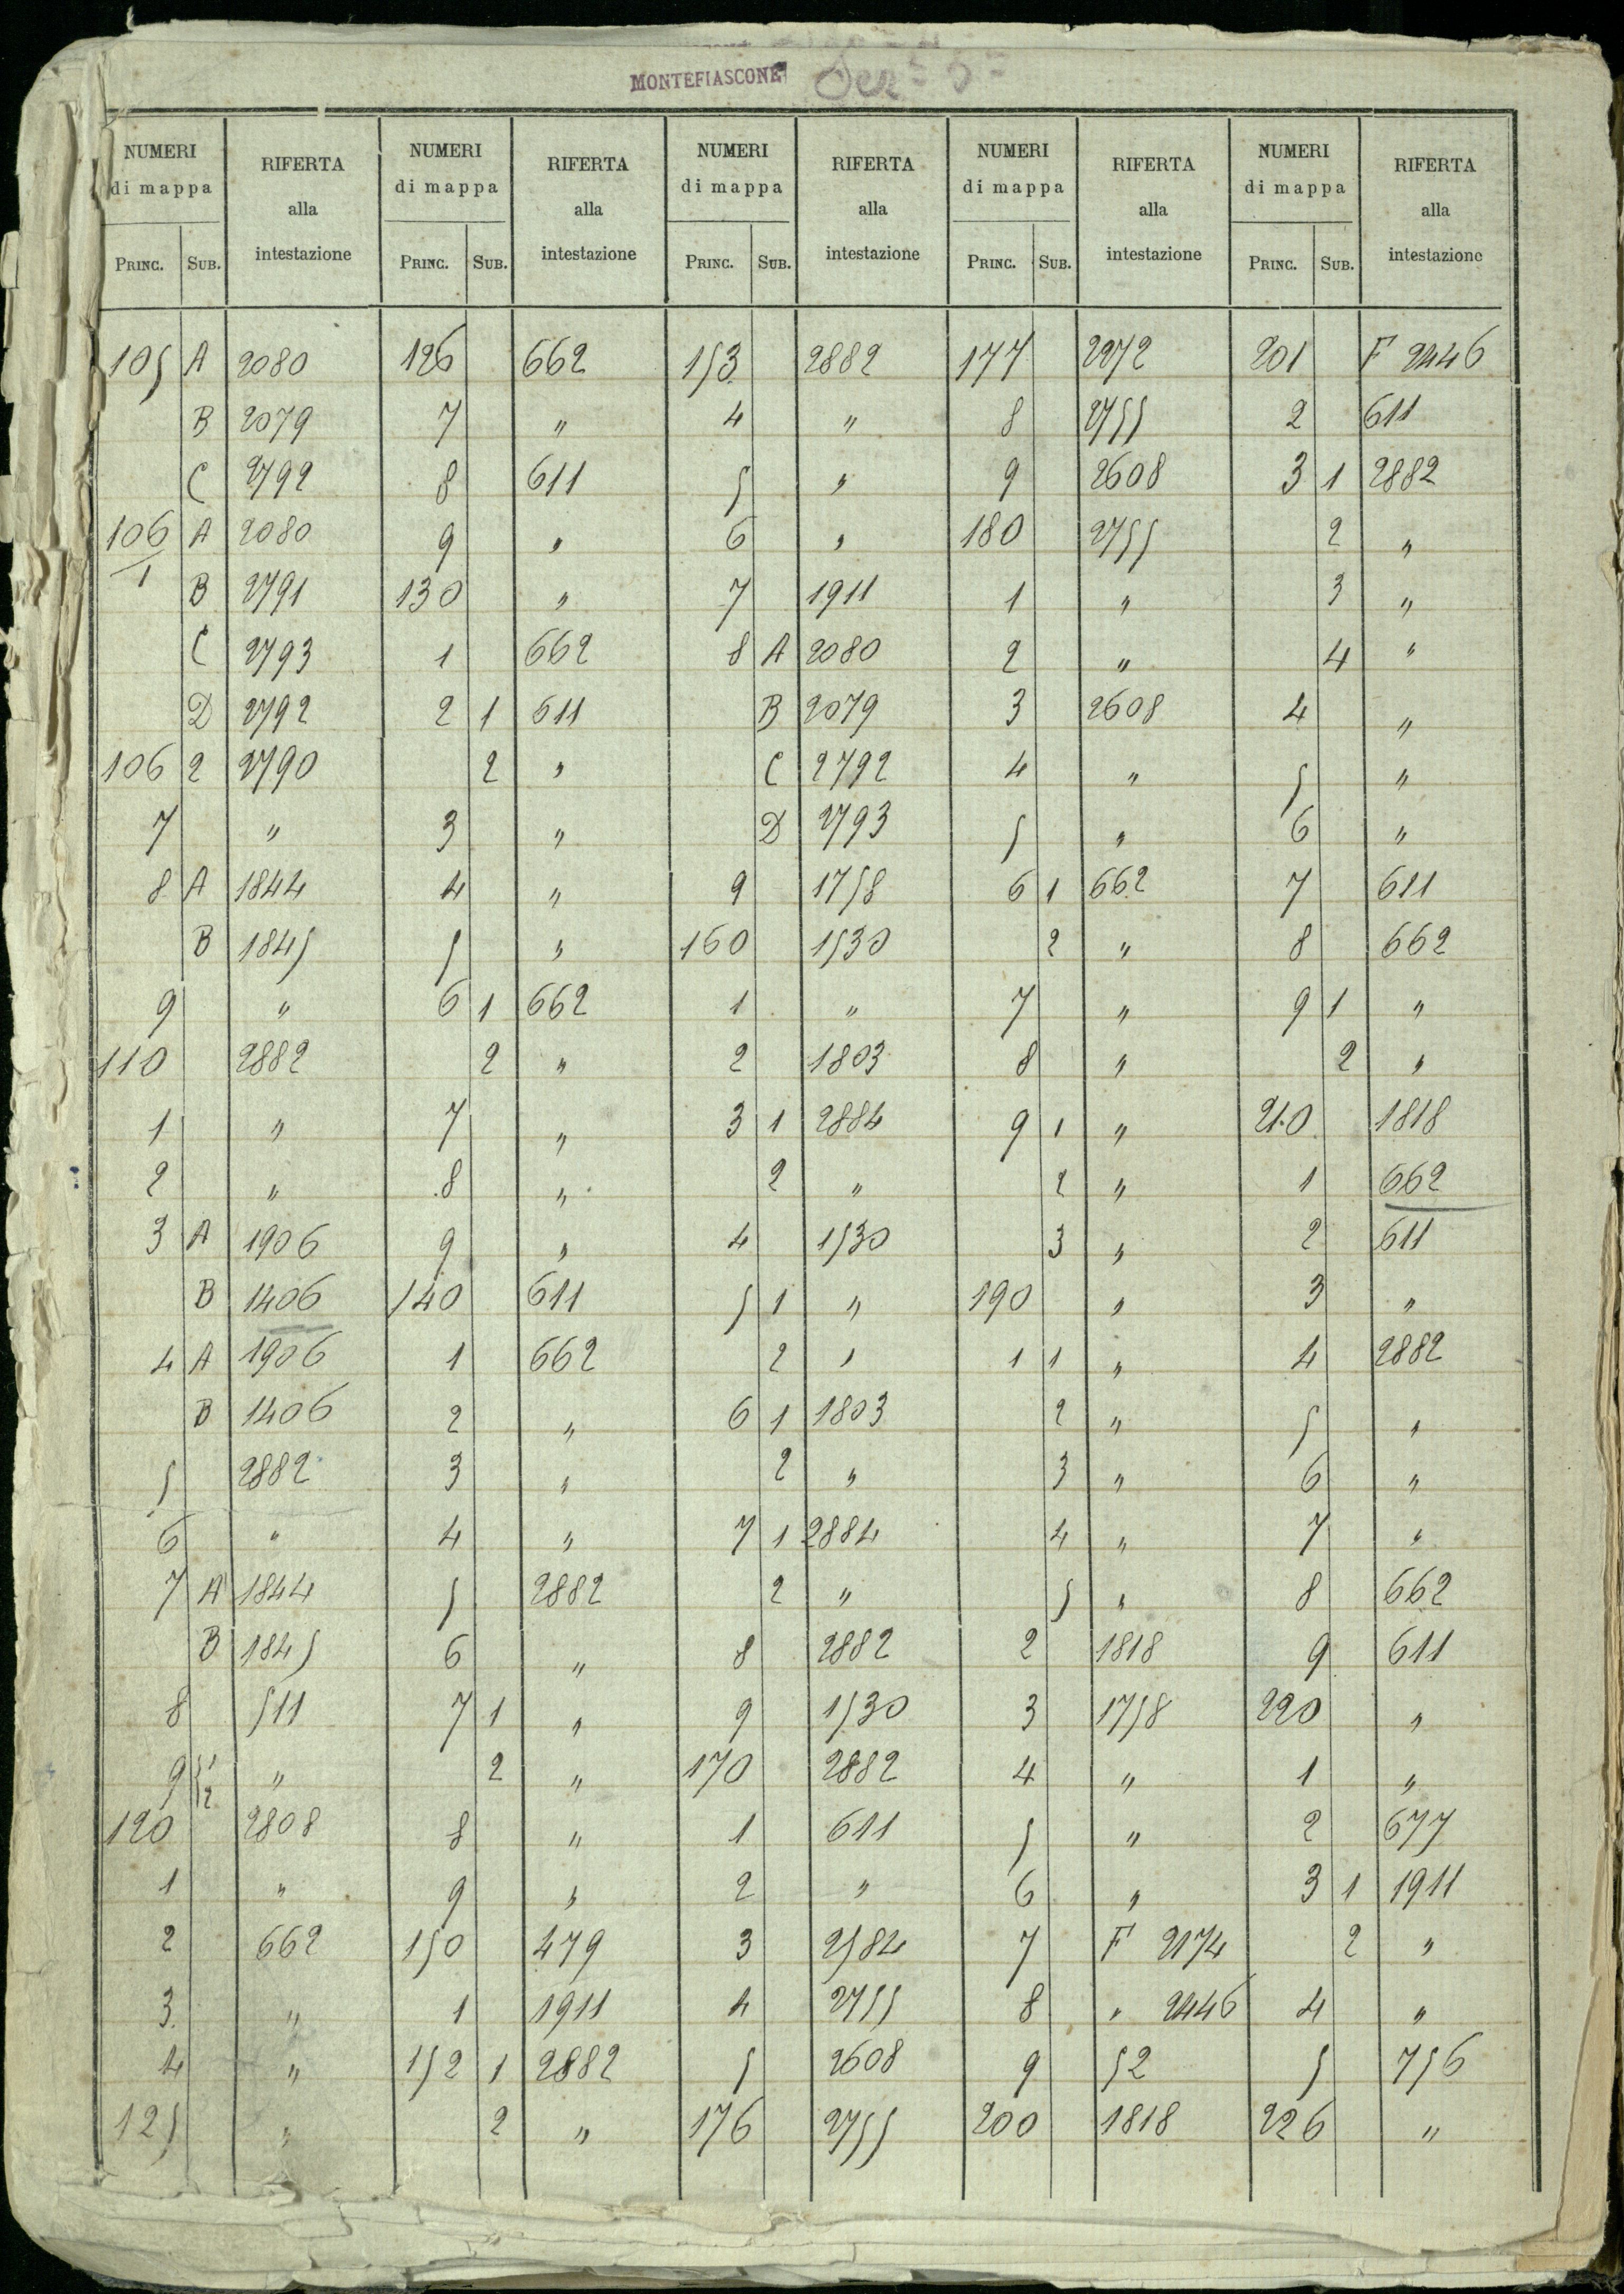 MONTEFIASCONE Sez.e 5a
NUMERI di mappa | RIFERTA alla intestazione | NUMERI di mappa | RIFERTA alla intestazione | NUMERI di mappa | RIFERTA alla intestazione | NUMERI di mappa | RIFERTA alla intestazione | NUMERI di mappa | RIFERTA alla intestazione
PRINC. | SUB. | | PRINC. | SUB. | | PRINC. | SUB. | | PRINC. | SUB. | | PRINC. | SUB. |
105 | A | 2080 | 126 | | 662 | 153 | | 2882 | 177 | | 2272 | 201 | | F 2446
| B | 2079 | 7 | | " | 4 | | " | 8 | | 2755 | 2 | | 611
| C | 2792 | 8 | | 611 | 5 | | " | 9 | | 2608 | 3 | 1 | 2882
106/1 | A | 2080 | 9 | | " | 6 | | " | 180 | | 2755 | | 2 | "
| B | 2791 | 130 | | " | 7 | | 1911 | 1 | | " | | 3 | "
| C | 2793 | 1 | | 662 | 8 | A | 2080 | 2 | | " | | 4 | "
| D | 2792 | 2 | 1 | 611 | | B | 2079 | 3 | | 2608 | 4 | | "
106 | 2 | 2790 | | 2 | " | | C | 2792 | 4 | | " | 5 | | "
7 | | " | 3 | | " | | D | 2793 | 5 | | " | 6 | | "
8 | A | 1844 | 4 | | " | 9 | | 1758 | 6 | 1 | 662 | 7 | | 611
| B | 1845 | 5 | | " | 160 | | 1530 | | 2 | " | 8 | | 662
9 | | " | 6 | 1 | 662 | 1 | | " | 7 | | " | 9 | 1 | "
110 | | 2882 | | 2 | " | 2 | | 1803 | 8 | | " | | 2 | "
1 | | " | 7 | | " | 3 | 1 | 2884 | 9 | 1 | " | 210 | | 1818
2 | | " | 8 | | " | | 2 | " | | 2 | " | 1 | | 662
3 | A | 1906 | 9 | | " | 4 | | 1530 | | 3 | " | 2 | | 611
| B | 1406 | 140 | | 611 | 5 | 1 | " | 190 | | " | 3 | | "
4 | A | 1906 | 1 | | 662 | | 2 | " | 1 | 1 | " | 4 | | 2882
| B | 1406 | 2 | | " | 6 | 1 | 1803 | | 2 | " | 5 | | "
5 | | 2882 | 3 | | " | | 2 | " | | 3 | " | 6 | | "
6 | | " | 4 | | " | 7 | 1 | 2884 | | 4 | " | 7 | | "
7 | A | 1844 | 5 | | 2882 | | 2 | " | | 5 | " | 8 | | 662
| B | 1845 | 6 | | " | 8 | | 2882 | 2 | | 1818 | 9 | | 611
8 | | 511 | 7 | 1 | " | 9 | | 1530 | 3 | | 1758 | 220 | | "
9 | 1 2 | " | | 2 | " | 170 | | 2882 | 4 | | " | 1 | | "
120 | | 2808 | 8 | | " | 1 | | 611 | 5 | | " | 2 | | 677
1 | | " | 9 | | " | 2 | | " | 6 | | " | 3 | 1 | 1911
2 | | 662 | 150 | | 479 | 3 | | 2584 | 7 | | F 2174 | | 2 | "
3 | | " | 1 | | 1911 | 4 | | 2755 | 8 | | " 2446 | 4 | | "
4 | | " | 152 | 1 | 2882 | 5 | | 2608 | 9 | | 52 | 5 | | 756
125 | | " | | 2 | " | 176 | | 2755 | 200 | | 1818 | 226 | | "